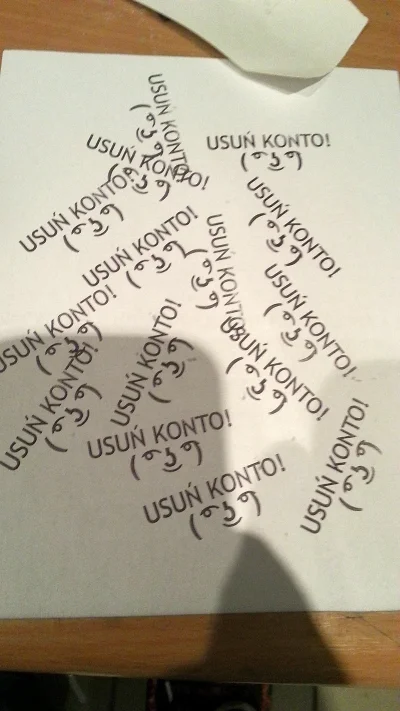 USUŃ KONTO!
( ͡° ͜ʖ ͡°)
USUŃ KONTO!
( ͡° ͜ʖ ͡°)
USUŃ KONTO!
( ͡° ͜ʖ ͡°)
USUŃ KONTO!
( ͡° ͜ʖ ͡°)
USUŃ KONTO!
( ͡° ͜ʖ ͡°)
USUŃ KONTO!
( ͡° ͜ʖ ͡°)
USUŃ KONTO!
( ͡° ͜ʖ ͡°)
USUŃ KONTO!
( ͡° ͜ʖ ͡°)
USUŃ KONTO!
( ͡° ͜ʖ ͡°)
USUŃ KONTO!
( ͡° ͜ʖ ͡°)
USUŃ KONTO!
( ͡° ͜ʖ ͡°)
USUŃ KONTO!
( ͡° ͜ʖ ͡°)
USUŃ KONTO!
( ͡° ͜ʖ ͡°)
USUŃ KONTO!
( ͡° ͜ʖ ͡°)
USUŃ KONTO!
( ͡° ͜ʖ ͡°)